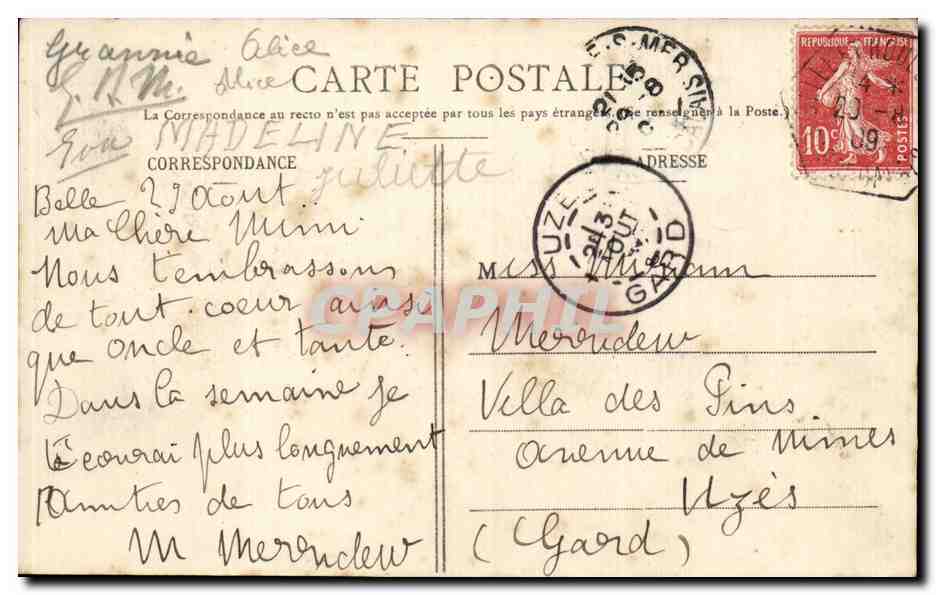 Grannie Alice
G.H.M. Alice
CARTE POSTALE
La Correspondance au recto n'est pas acceptée par tous les pays étrangers (Se renseigner à la Poste.)
Eva MADELINE
juliette
CORRESPONDANCE
ADRESSE
REPUBLIQUE FRANÇAISE
10c
POSTES
E-S-MER
UZE
31
AOUT
GARD
Belle 29 Aout
Ma Chère Mimi
Nous t'embrassons
de tout coeur ainsi
que oncle et tante.
Dans la semaine je
t'écourai plus longuement
de tous
M Merendew
Miss
Merendew
Villa des Pins
avenue de Nimes
Uzès
(Gard)
CPAPHIL